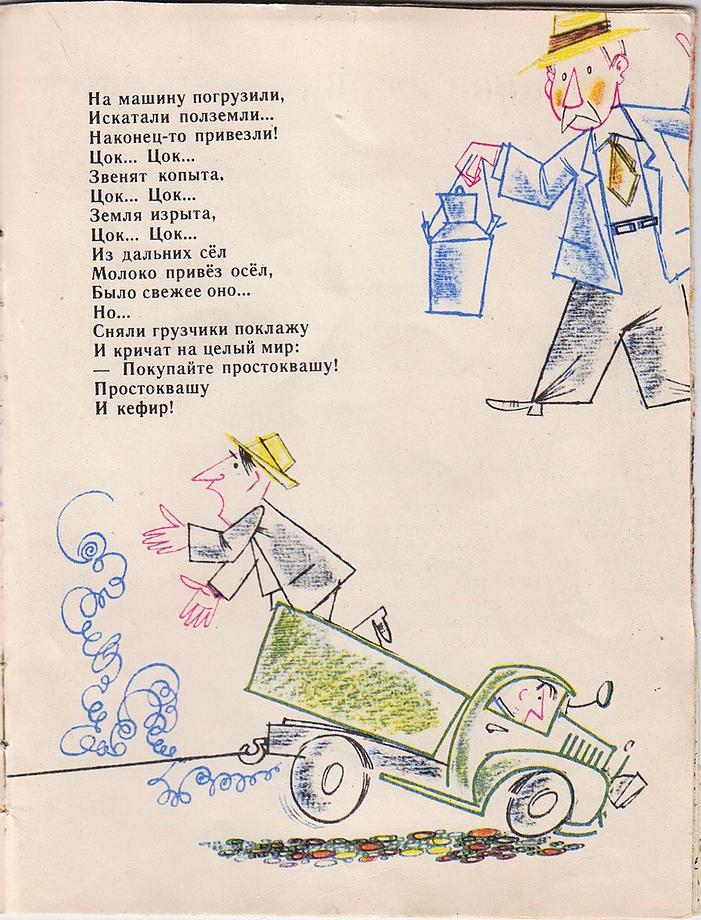 На машину погрузили,
Искатали полземли...
Наконец-то привезли!
Цок... Цок...
Звенят копыта,
Цок... Цок...
Земля изрыта,
Цок... Цок...
Из дальних сёл
Молоко привёз осёл,
Было свежее оно...
Но...
Сняли грузчики поклажу
И кричат на целый мир:
— Покупайте простоквашу!
Простоквашу
И кефир!